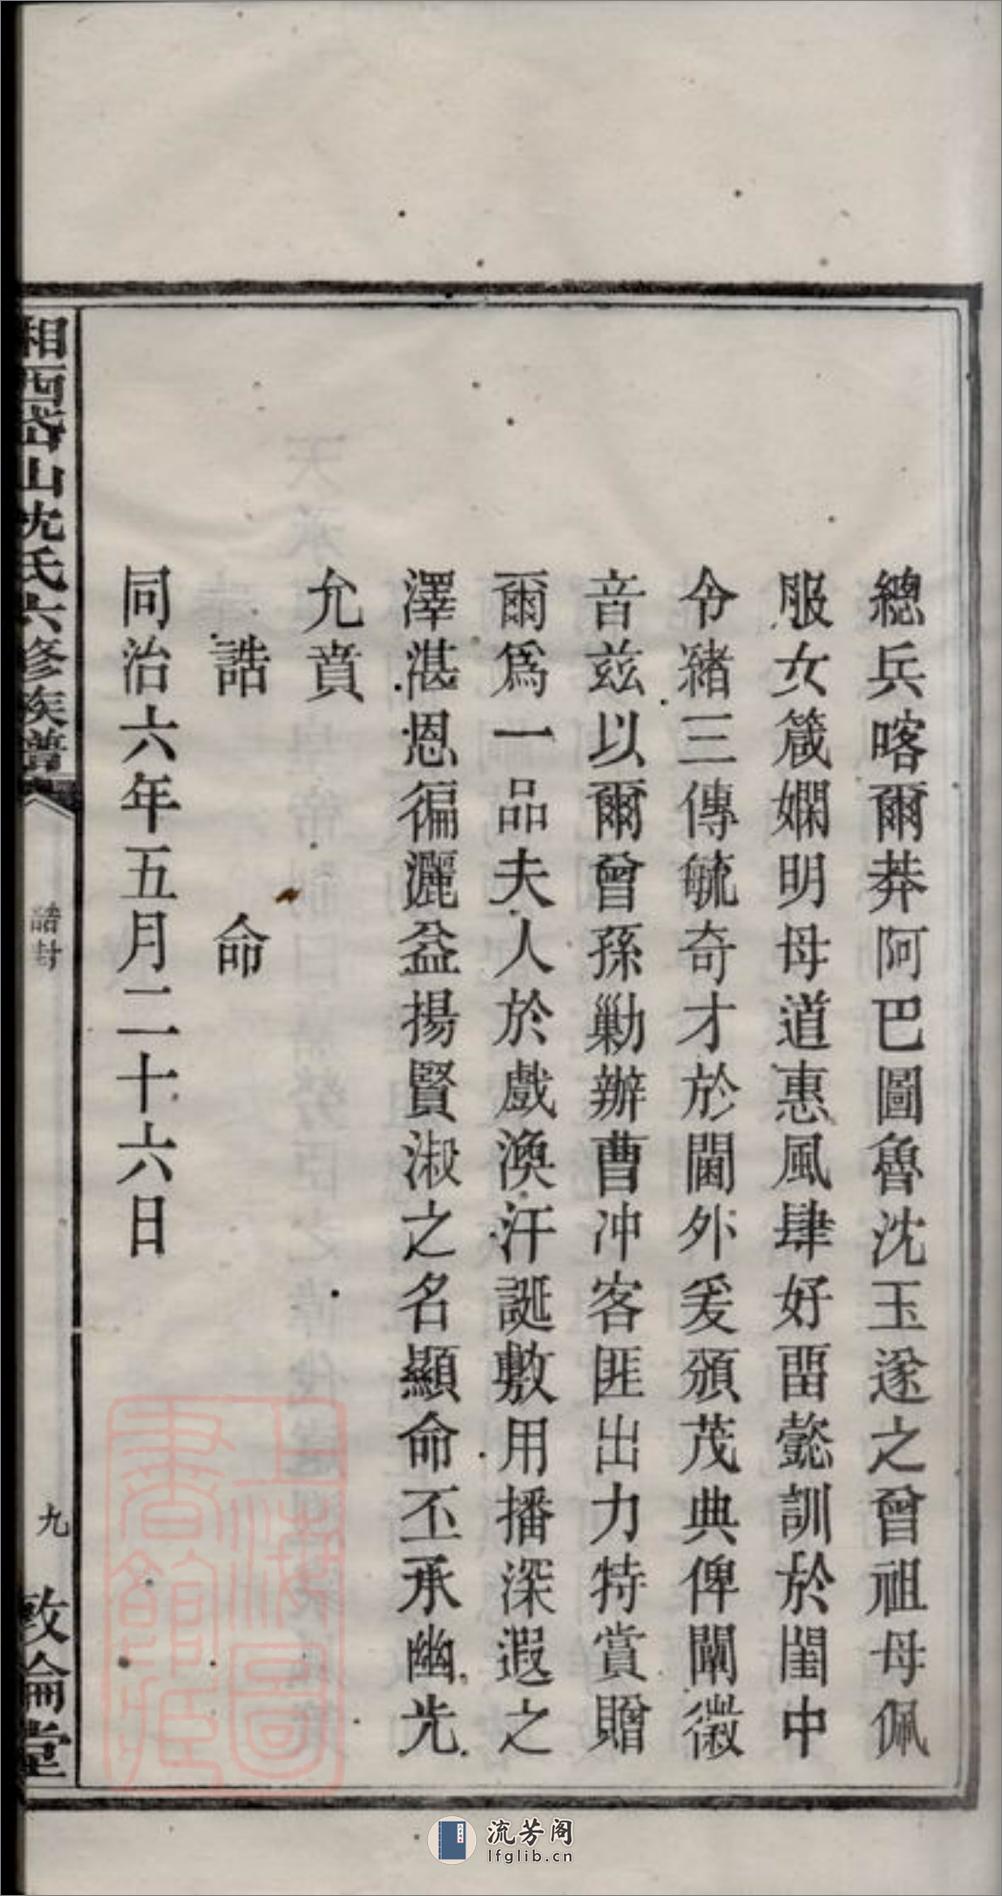 總兵喀爾莽阿巴圖魯沈玉遂之曾祖母佩
服女箴嫻明母道惠風肆好畱懿訓於閨中
令緒三傳毓奇才於閫外爰頒茂典俾闡徽
音兹以爾曾孫勦辦曹冲客匪出力特賞贈
爾爲一品夫人於戲渙汗誕敷用播深遐之
澤湛恩徧灑益揚賢淑之名顯命丕承幽光
允賁
誥 命
同治六年五月二十六日
湘西岱山沈氏六修族譜
誥封
九
敦倫堂
上海圖書館藏
流芳阁
lfglib.cn